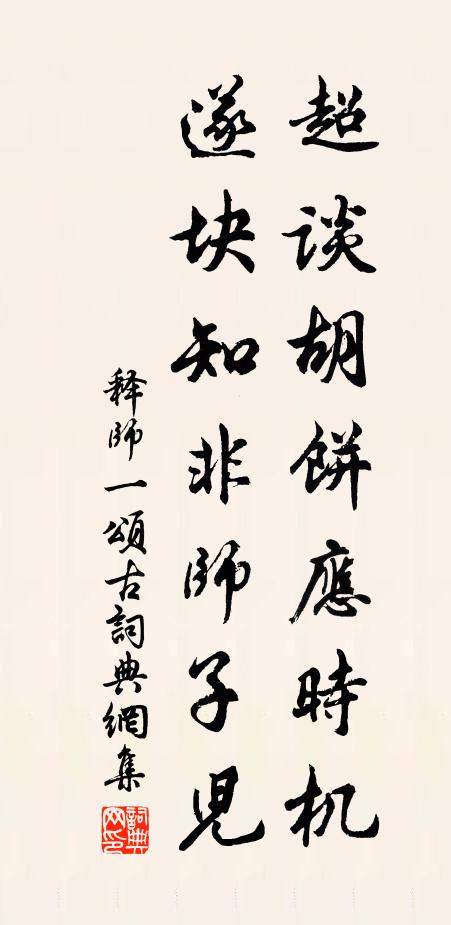 超谈胡餅應時机
遂块知非師子児
释師一頌古詞典網集
詞典
网印